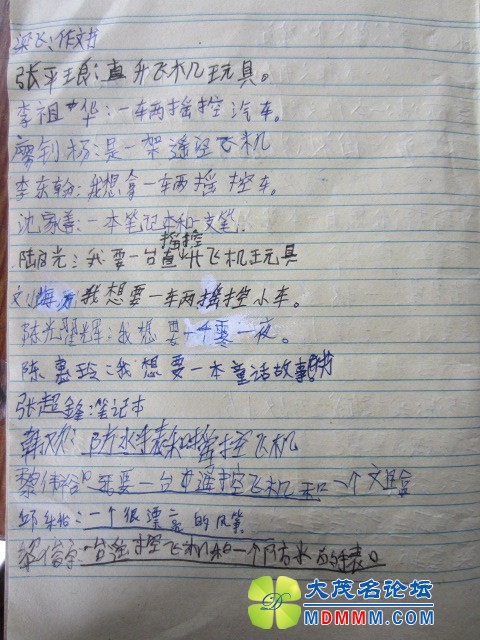 梁飞:作文书
张平王良:直升飞机玩具。
李祖华:一车两摇控汽车。
廖钊杨:是一架遥控飞机
李东翰:我想拿一车两摇控车。
沈家善:一本笔记本和一支笔。
陆光:我要一台摇控直升飞机玩具
刘海 我想要一车两摇控小车。
陈光耀辉:我想要一个零一夜。
陈惠玲:我想要一本童话故事书
张超鋒:笔记本
防水手表和摇控飞机
黎伟 要一台遥控飞机和一个文具盒
邱 :一个很漂亮的风筝
梁 一台遥控飞机和一个防水的手表。
大茂名论坛
MDMMM.COM